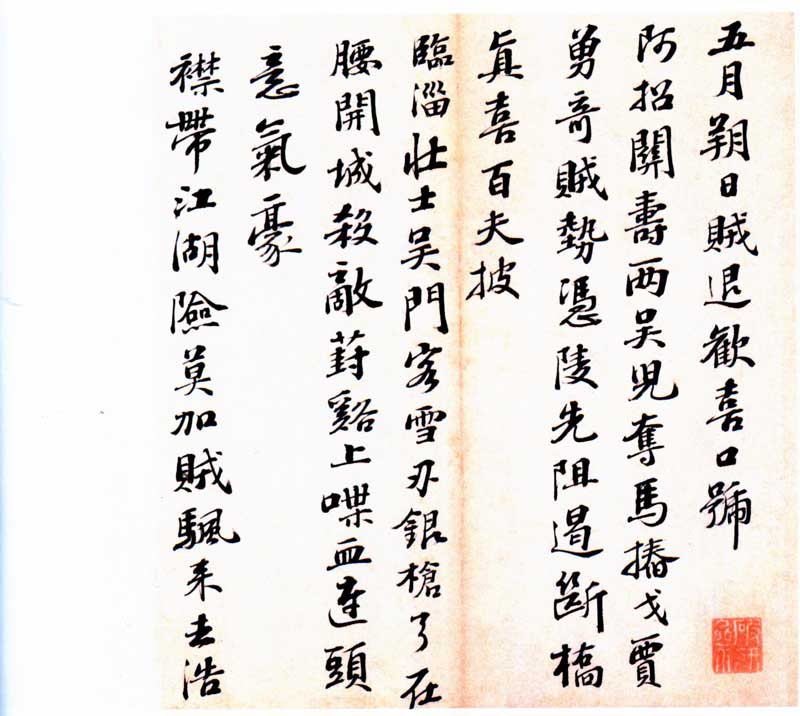 五月朔日賊退歡喜口號
阿招關壽兩吳兒奪馬摏戈賈
勇奇賊勢憑陵先阻遏斷橋
真喜百夫披
臨淄壯士吳門客雪刃銀槍弓在
腰開城殺敵葑谿上喋血連頭
意氣豪
襟帶江湖險莫加賊颿来去浩